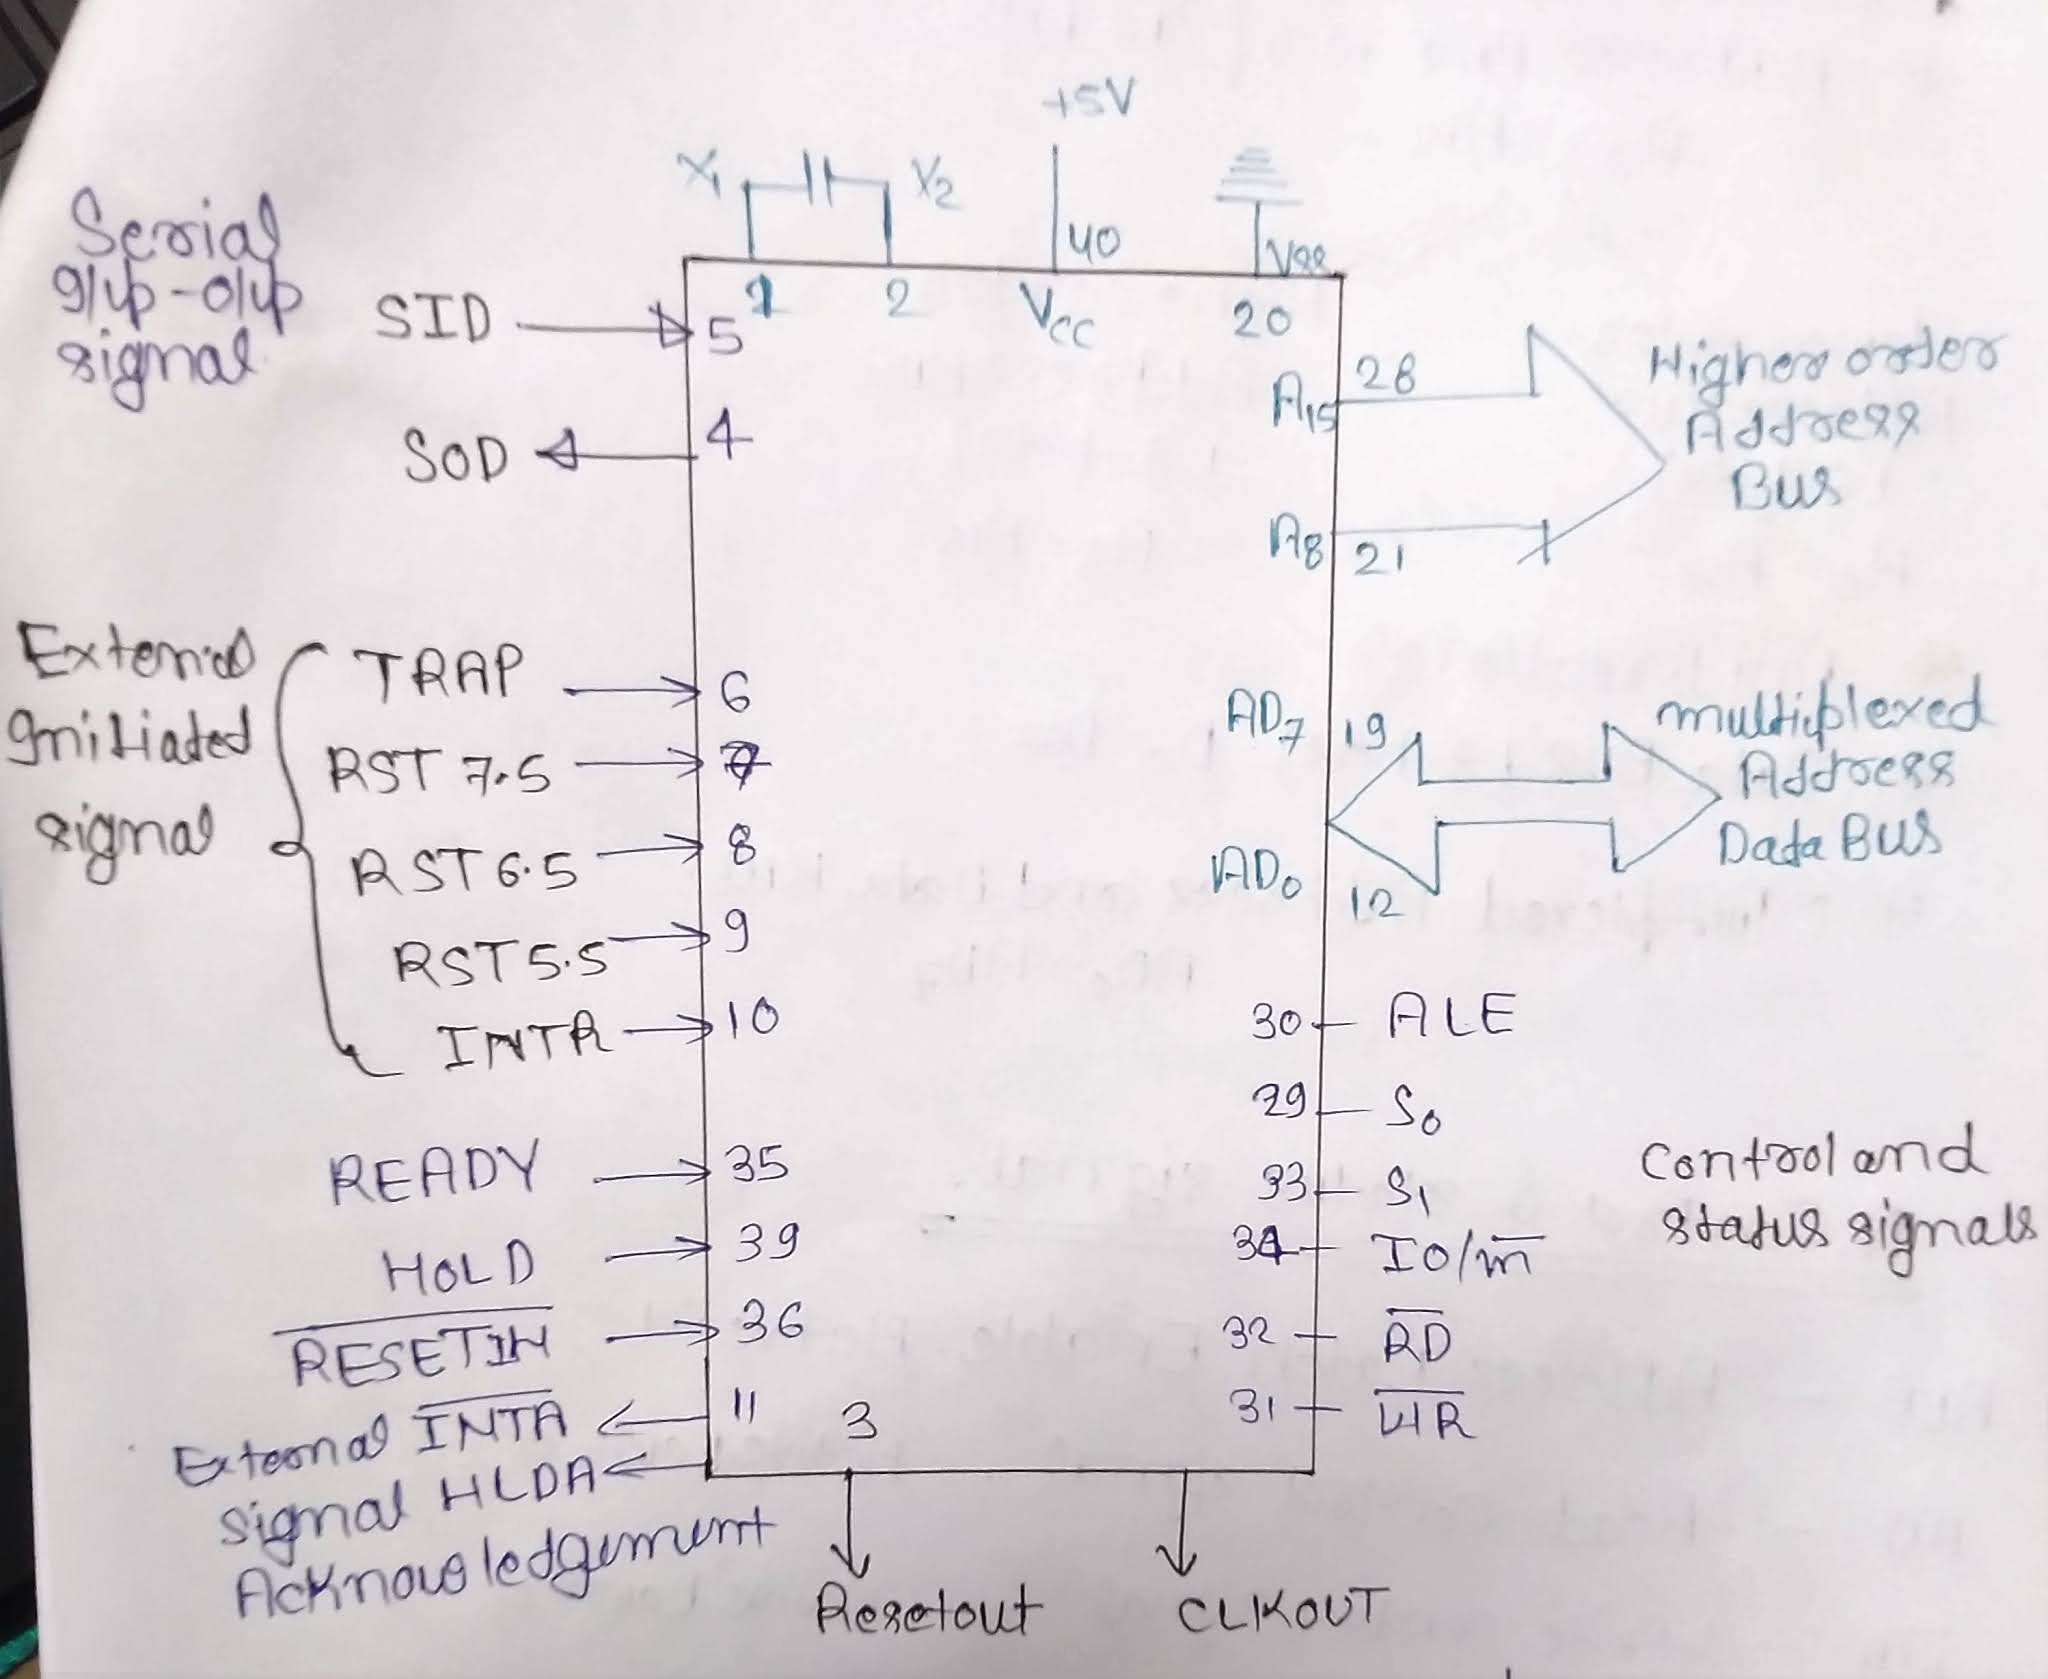 +5V
X1 X2
40 Vss
1 2 Vcc 20
Serial
I/p-o/p
signal
SID 5
SOD 4
A15 28
Higher order
Address
Bus
A8 21
External
Initiated
signal
TRAP 6
RST 7.5 7
RST 6.5 8
RST 5.5 9
INTR 10
AD7 19
multiplexed
Address
Data Bus
AD0 12
30 ALE
29 S0
33 S1
34 IO/m̅
32 R̅D̅
31 W̅R̅
Control and
status signals
READY 35
HOLD 39
R̅E̅S̅E̅T̅I̅N̅ 36
External I̅N̅T̅A̅ 11
signal HLDA
Acknowledgement
3
Resetout
CLKOUT